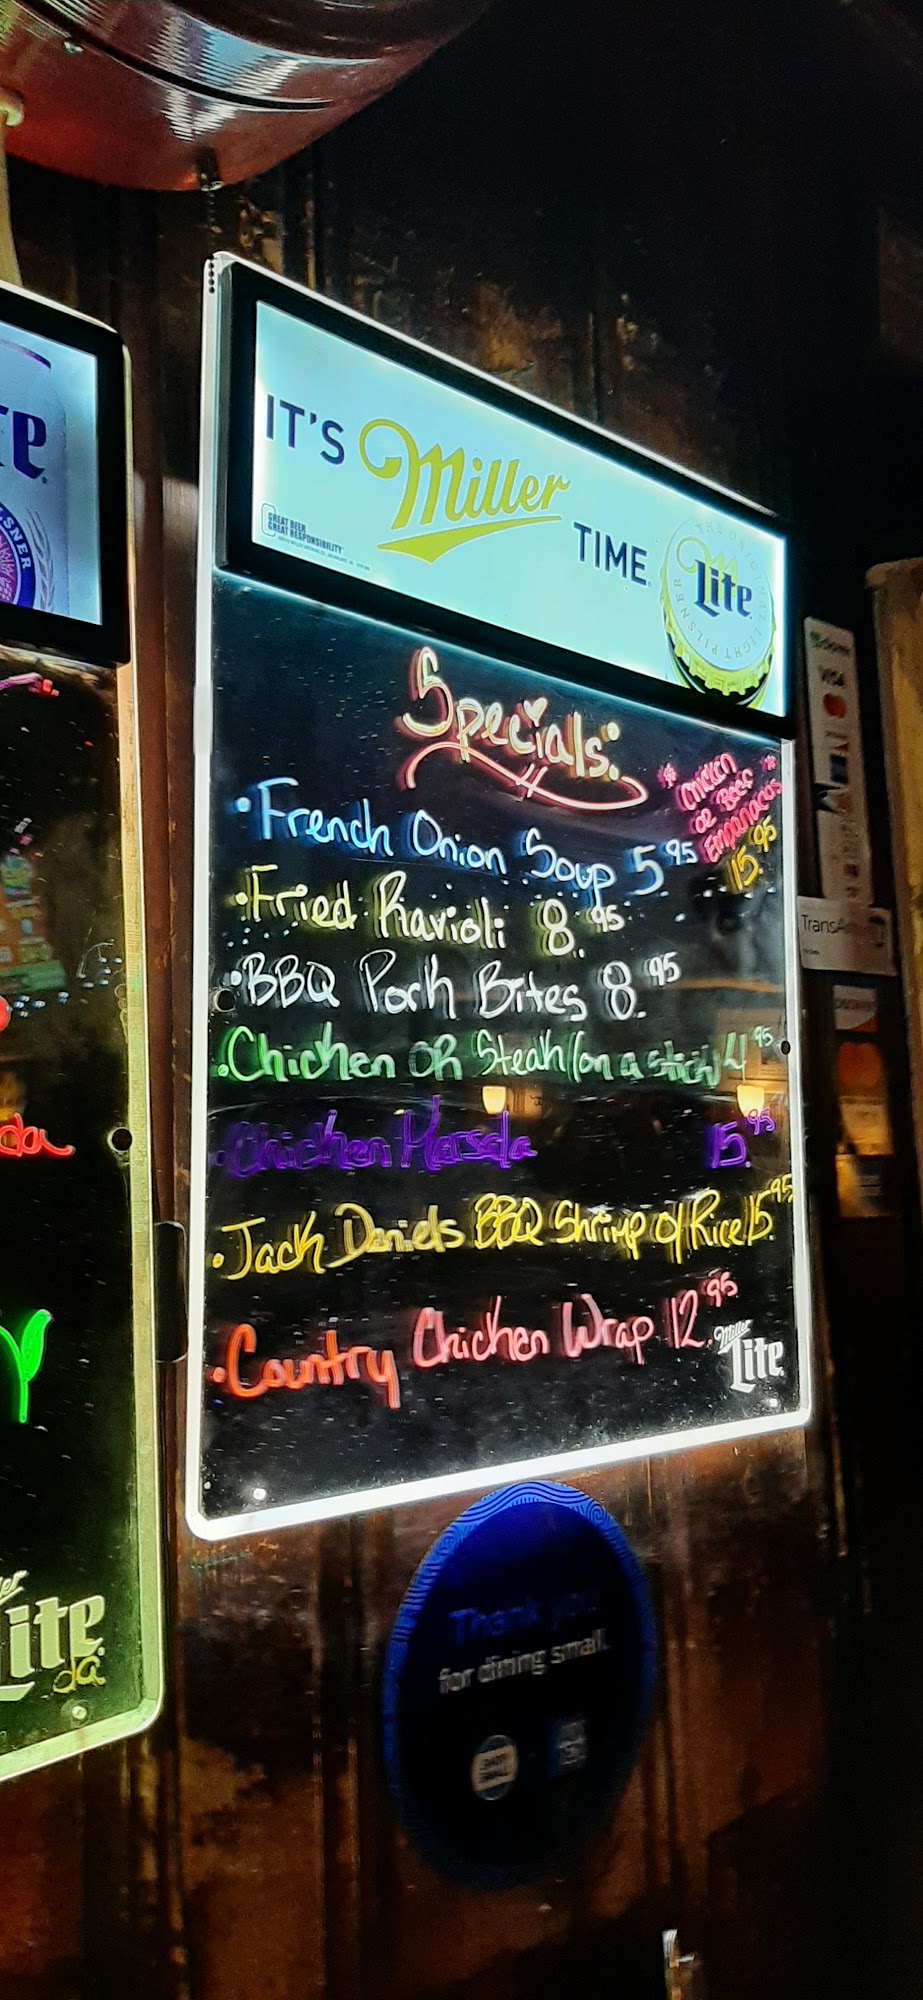 IT'S Miller TIME
GREAT BEER
GREAT RESPONSIBILITY
THE ORIGINAL LIGHT PILSNER
Lite
Specials:
* Chicken *
or Beef
Empanadas
15.95
• French Onion Soup 5.95
• Fried Ravioli 8.95
• BBQ Pork Brites 8.95
• Chicken OR Steak (on a stick) 4.95
• Chicken Marsala 15.95
• Jack Daniels BBQ Shrimp o/ Rice 15.95
• Country Chicken Wrap 12.95
Miller
Lite
Thank you
for dining small.
VISA
da
Lite
da